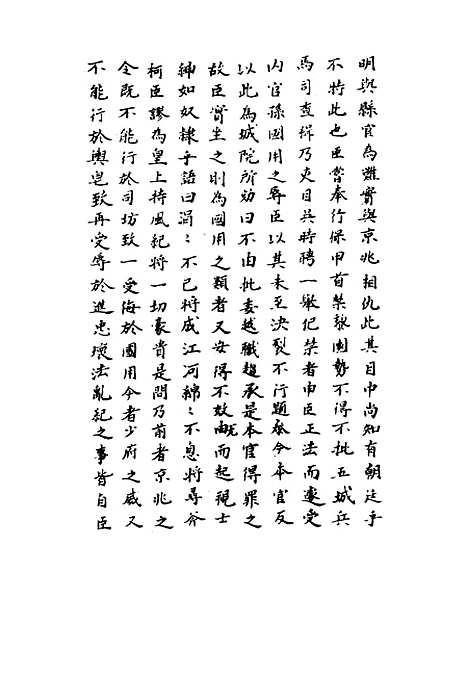 明與縣官為難實與京兆相仇此其目中尚知有朝廷乎
不特此也臣嘗奉行保甲首禁賭圍勢不得不批五城兵
馬司查緝乃吏目吳時聘一舉犯禁者申臣正法而遽受
內官孫國用之辱臣以其未至決裂不行題參今本官反
以此為城院所劾曰不由批委越職趨承是本官得罪之
故臣實坐之則為國用之類者又安得不效尤而起視士
紳如奴隸乎語曰涓涓不已將成江河綿綿不息將尋斧
柯臣謬為皇上持風紀將一切豪貴是問乃前者京兆之
令既不能行於司坊致一受侮於國用今者少府之威又
不能行於輿皂致再受辱於進忠壞法亂紀之事皆自臣